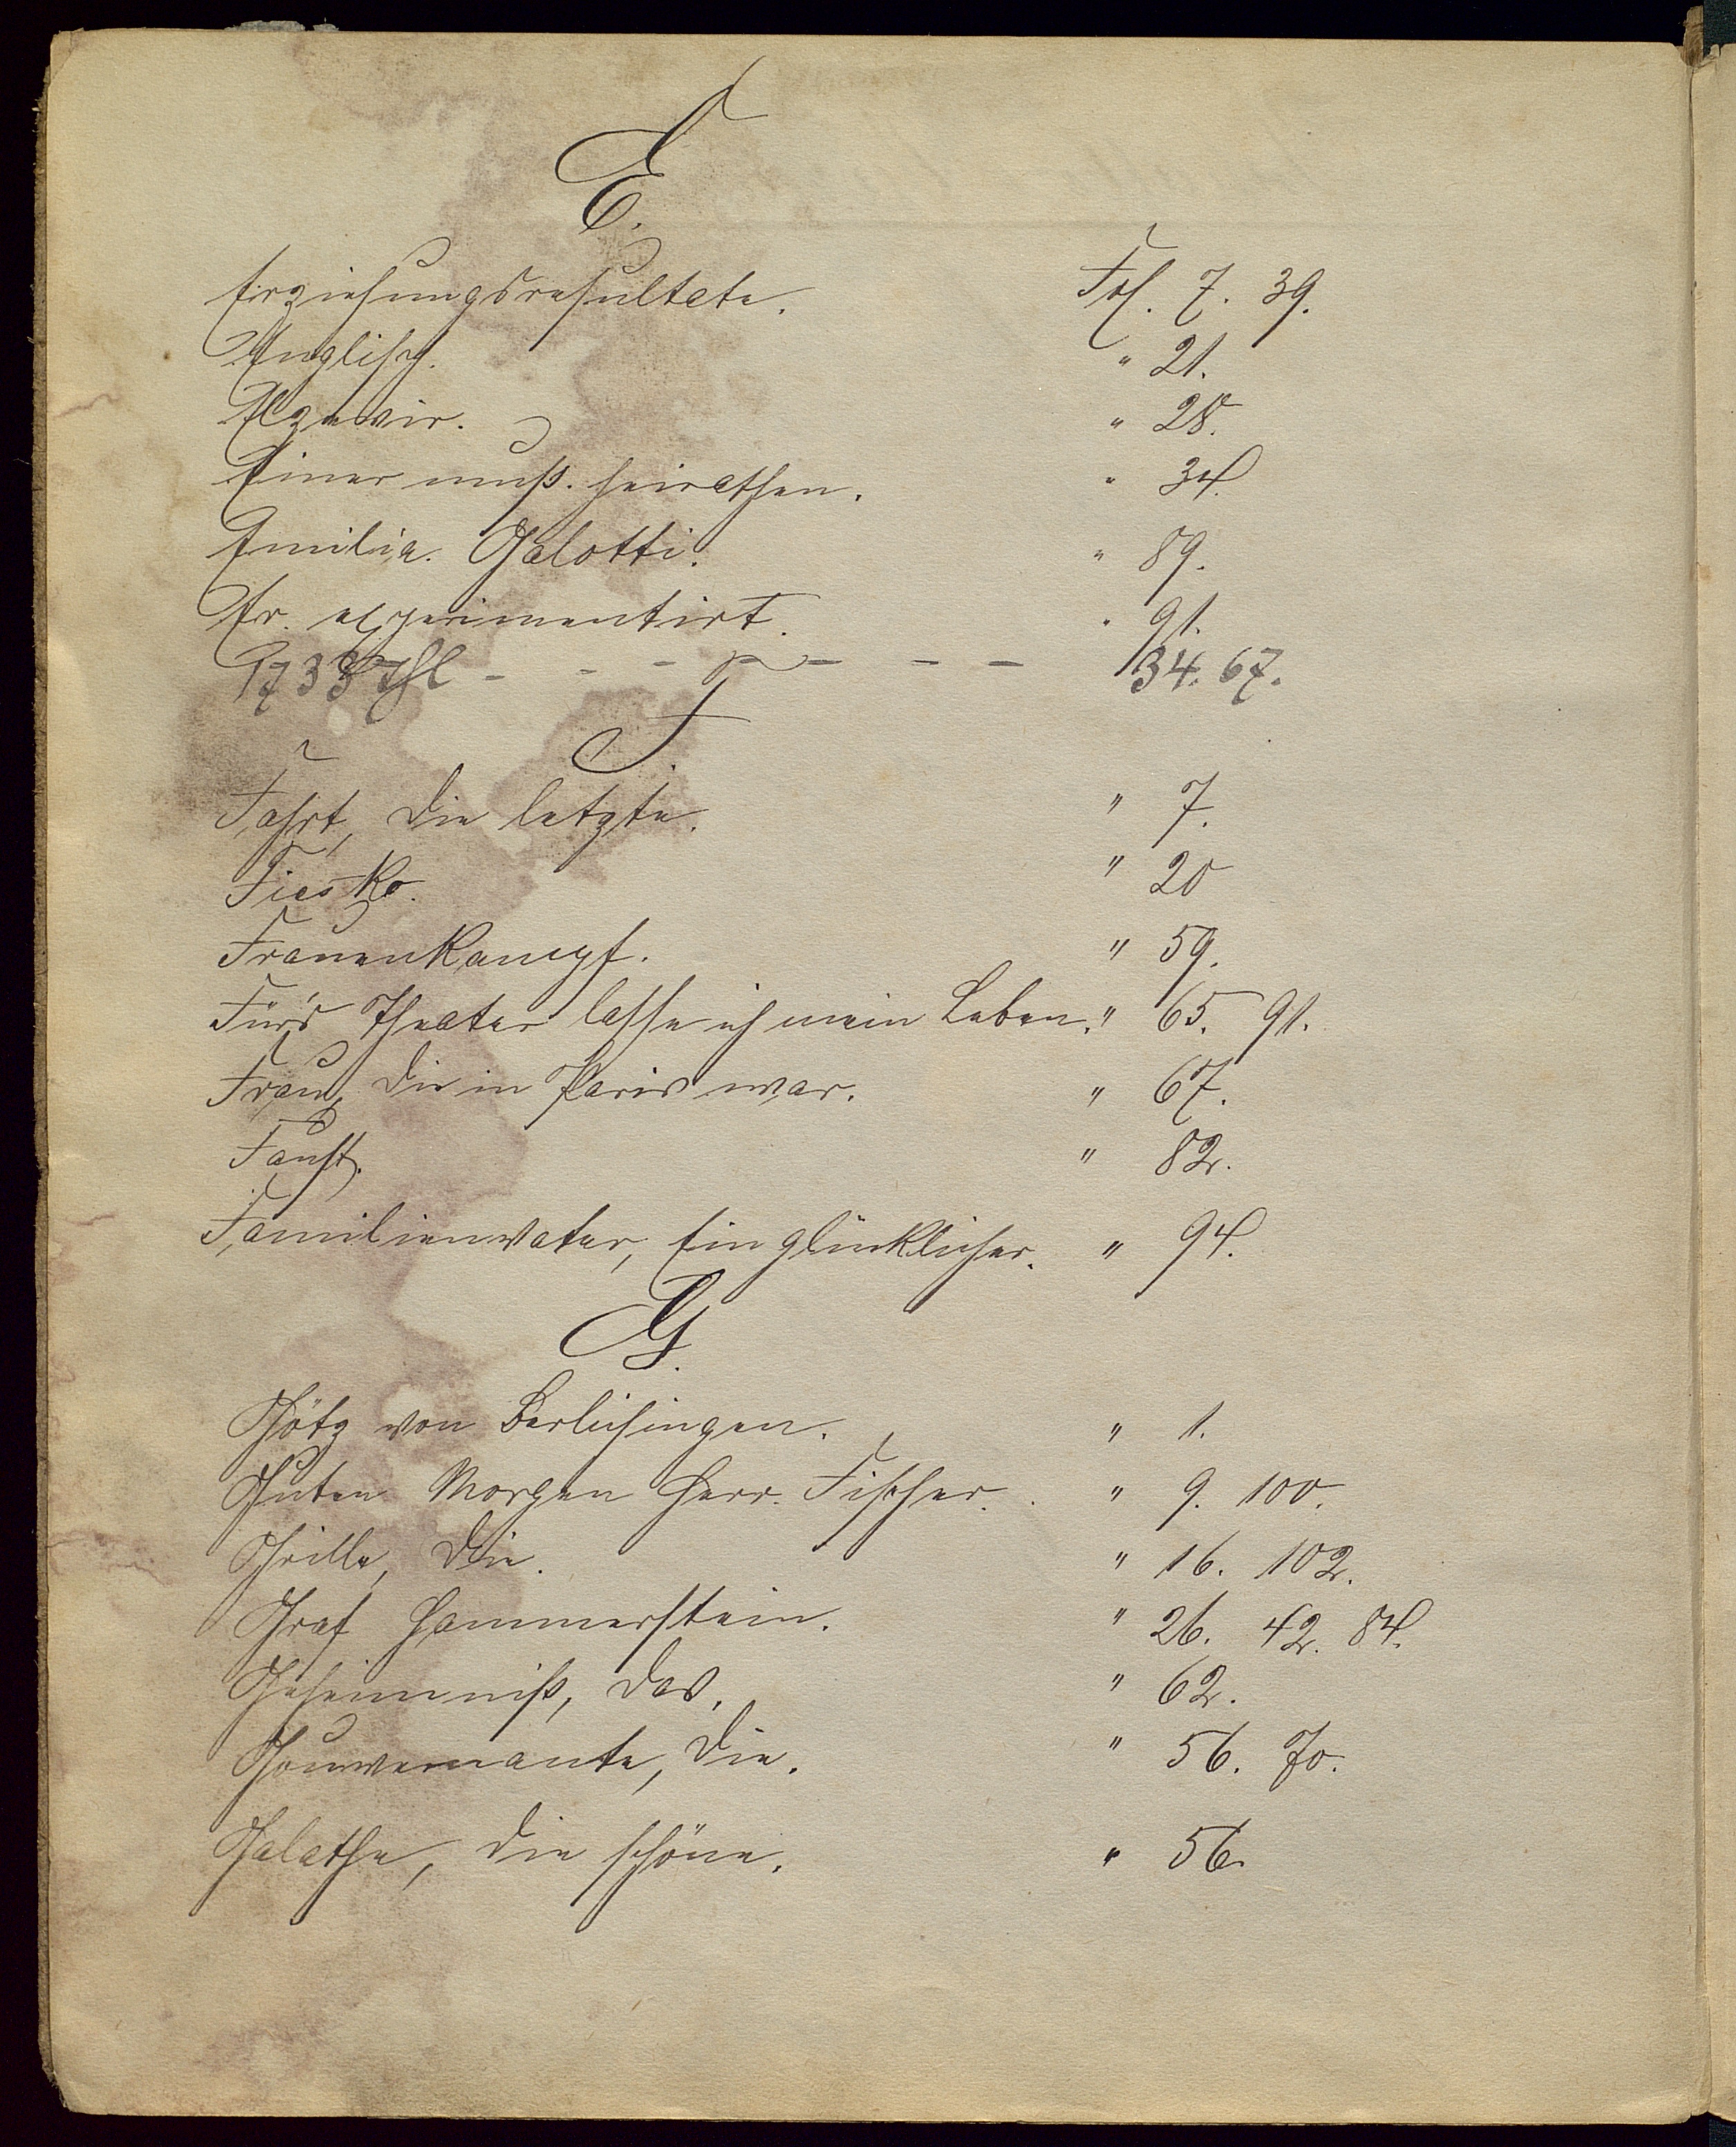 E.
Erziehungsresultate. Fol. 7. 39.
Englisch. " 21.
Elzevir. " 28.
Einer muß heirathen. " 34.
Emilia Galotti. " 89.
Er experimentirt. " 91.
1733 Thl - - - - - - 34. 67.
F.
Fahrt, die letzte. " 7.
Fiesko. " 20
Frauenkampf. " 59.
Für's Theater lasse ich mein Leben. " 65. 91.
Frau, die in Paris war. " 67.
Faust. " 82.
Familienvater, Ein glücklicher. " 94.
G.
Götz von Berlichingen. " 1.
Guten Morgen Herr Fischer. " 9. 100.
Grille, Die. " 16. 102.
Graf Hammerstein. " 26. 42. 84.
Geheimniß, das. " 62.
Gouvernante, Die. " 56. 70.
Galathe, die schöne. " 56.